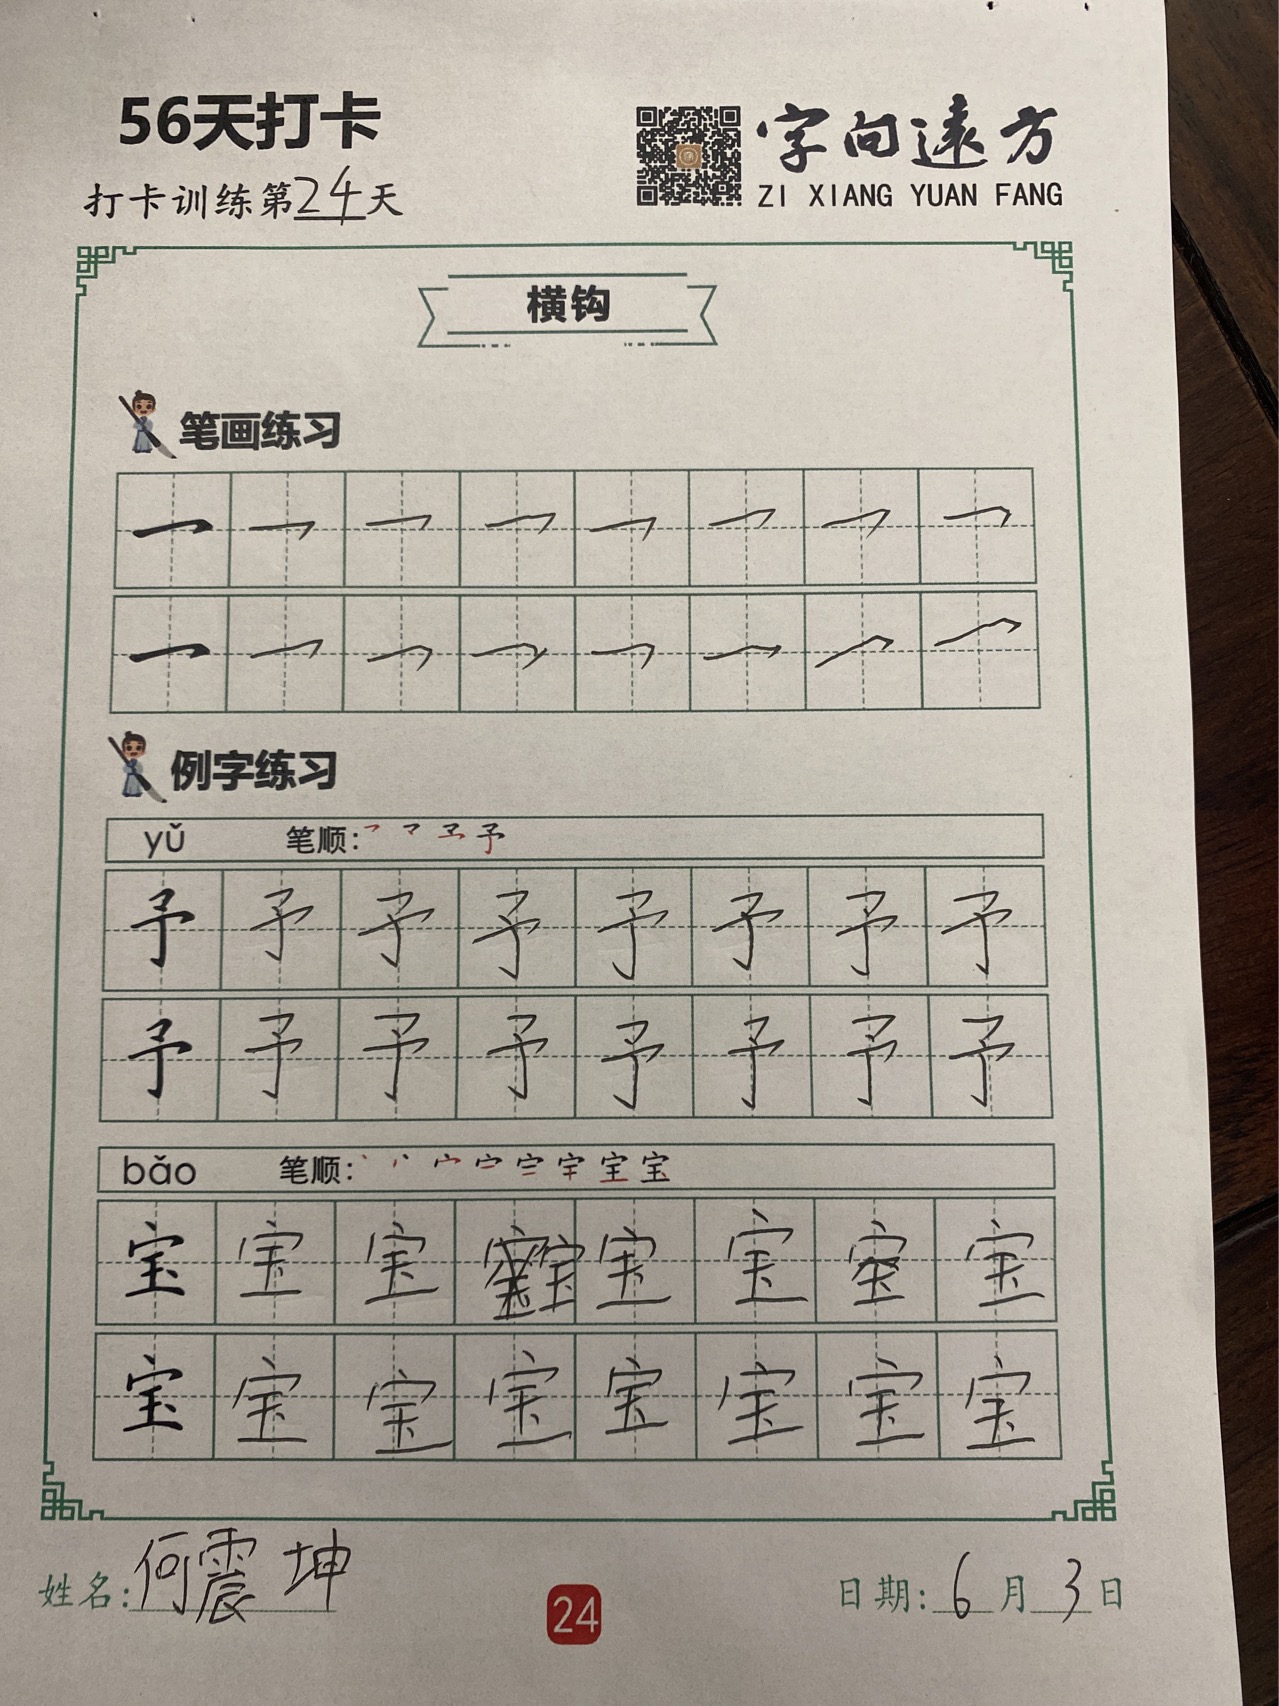 56天打卡
字向遠方
打卡训练第24天
ZI XIANG YUAN FANG
横钩
笔画练习
例字练习
yǔ 笔顺:
予 予 予 予 予 予 予 予
予 予 予 予 予 予 予 予
bǎo 笔顺:
宝 宝 宝 宝 宝 宝 宝
宝 宝 宝 宝 宝 宝 宝 宝
姓名:何震坤
24
日期:6月3日